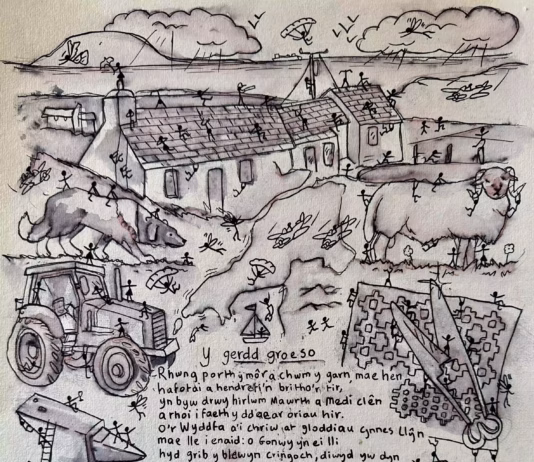 Y gerdd groeso
Rhwng porth y môr a chwm y garn, mae hen
hafotai a hendrefi'n britho'r tir,
yn byw drwy hirlwm Mawrth a Medi clên
a rhoi i faeth y ddaear oriau hir.
O'r Wyddfa a'i chriw at gloddiau cynnes Llŷn
mae lle i enaid: o Gonwy yn ei lli
hyd grib y blewyn cringoch, diwyd yw dyn